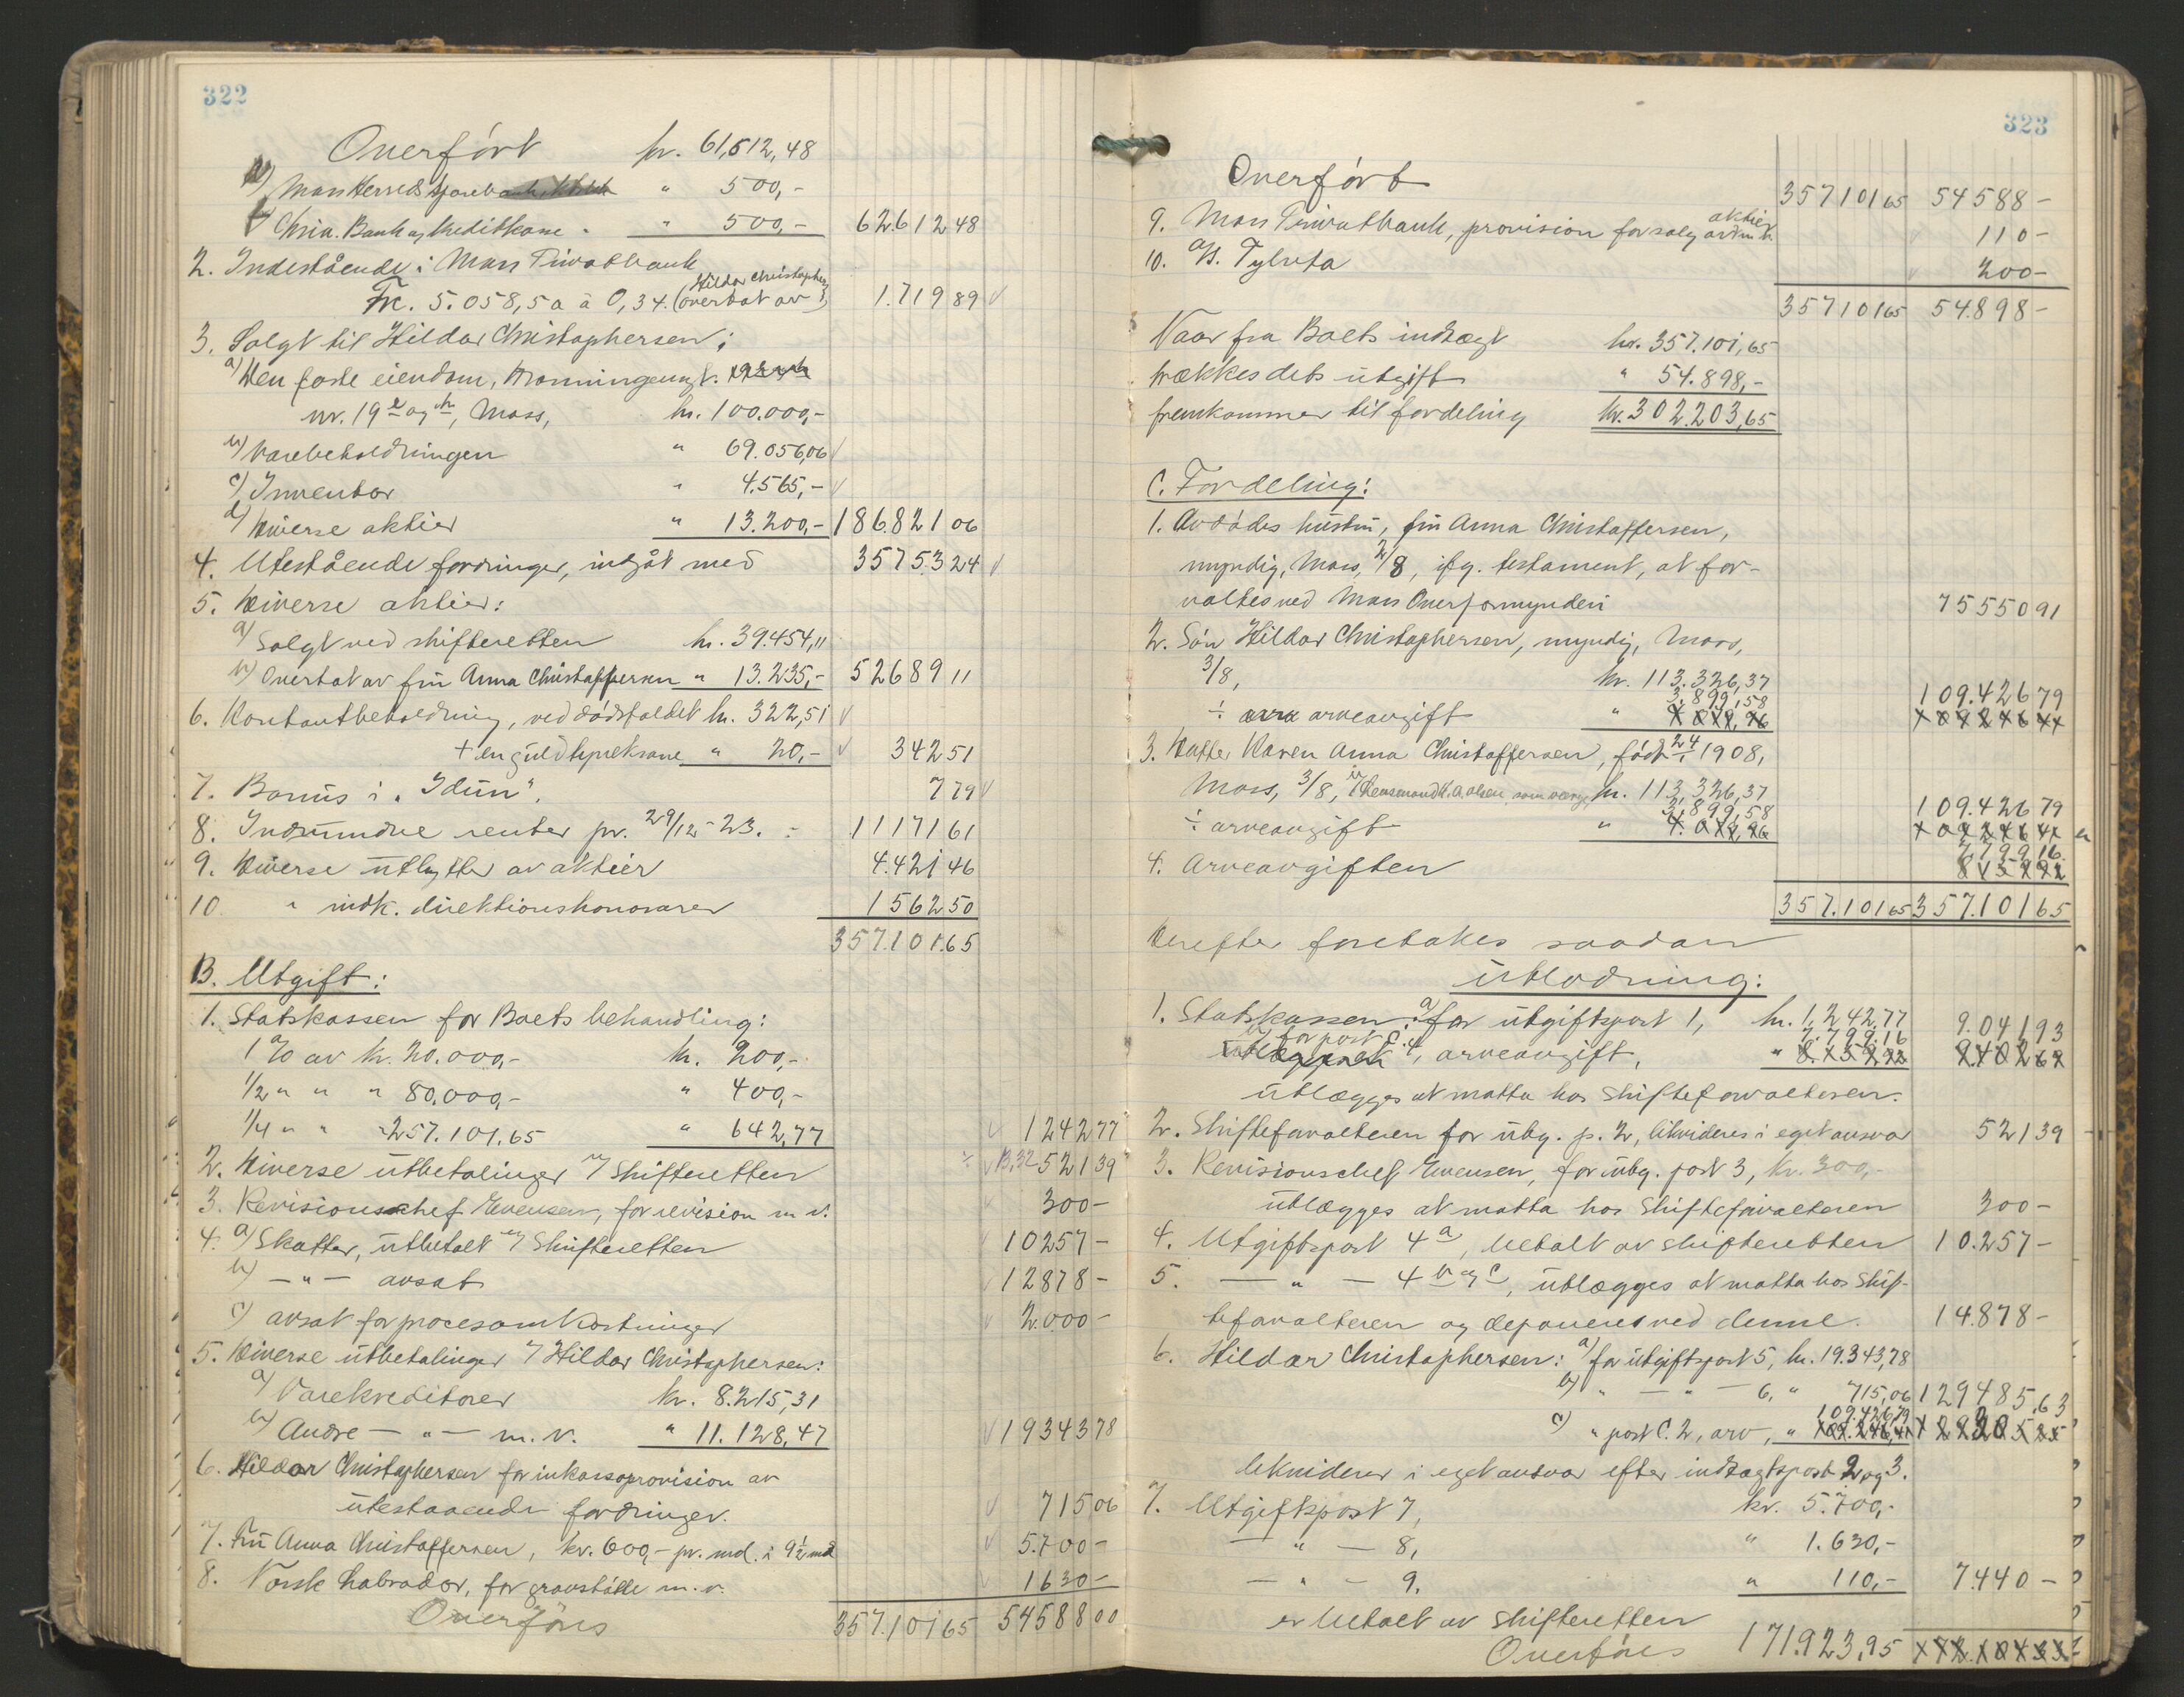 322
Overført kr. 61,612,48
Moss Herreds Sparebank " 500,-
Chria. Bank og Kreditkasse " 500,- 62.612 48
2. Indestående i Moss Privatbank
Frc. 5.058,50 à 0,34. (overtat av Hildar Christophersen) 1.719 89
3. Solgt til Hildar Christophersen:
a) Den faste eiendom, Dronningensgt.
nr. 19 a og b, Moss, kr. 100.000,-
b) Varebeholdningen " 69.056,06
c) Inventar " 4.565,-
d) Diverse aktier " 13.200,- 186.821 06
4. Utestående fordringer, indgåt med 35753 24
5. Diverse aktier:
a) Solgt ved skifteretten kr. 39.454,11
b) Overtat av fru Anna Christoffersen " 13.235,- 52689 11
6. Kontantbeholdning, ved dødsfaldet kr. 322,51
+ en guld tyvekrone " 20,- 342 51
7. Bonus i "Idun". 7 79
8. Indvundne renter pr. 29/12-23. 11171 61
9. Diverse utbytter av aktier 4.421 46
10 " indk. direktionshonorarer 1562 50
357.101.65
B. Utgift:
1. Statskassen for Boets behandling:
1 % av kr. 20.000,- kr. 200,-
1/2 " " " 80.000,- " 400,-
1/4 " " " 257.101.65 " 642,77 1242 77
2. Diverse utbetalinger v/ Skifteretten 521 39
3. Revisionschef Evensen, for revision m.v. 300 -
4. a) Skatter, utbetalt v/ Skifteretten 10257 -
b) — " — avsat 12878 -
c) avsat for procesomkostninger 2.000 -
5. Diverse utbetalinger v/ Hildar Christophersen:
a) Varekreditorer kr. 8.215,31
b) Andre — " — m.v. " 11.128,47 19343 78
6. Hildar Christophersen for inkassoprovision av
utestaaende fordringer. 715 06
7. Fru Anna Christoffersen, kr. 600,- pr. md. i 9 1/2 md 5.700 -
8. Norsk Labrador, for gravstøtte m.v. 1630 -
Overføres 357.101 65 54588 00
323
Overført 357101 65 54588 -
9. Moss Privatbank, provision for salg av aktier 110 -
10. 200 -
357101 65 54.898 -
Naar fra Boets indtægt kr. 357.101,65
trækkes dets utgift " 54.898,-
fremkommer til fordeling kr. 302.203,65
C. Fordeling:
1. Avdødes hustru, fru Anna Christoffersen,
myndig, Moss, 2/8, ifg. testament, at for-
valtes ved Moss Overformynderi 75550 91
2. Søn Hildar Christophersen, myndig, Moss,
3/8, kr. 113.326,37
3,899,58 109.426 79
÷ arveavgift "
3. Datter Karen Anna Christoffersen, født 1908,
Moss, 3/8, som verge, kr. 113,326,37
3,899,58 109.426 79
÷ arveavgift "
7.799 16
4. Arveavgiften
357.101 65 357.101 65
Derefter foretakes saadan
utlodning:
1. Statskassen: a) for utgiftspost 1, kr. 1,242,77 9.041 93
b) for post C. 4, arveavgift, 7.799.16
utlægges at motta hos Skifteforvalteren.
2. Skifteforvalteren for utg. p. 2, likvideres i eget ansvar 521 39
3. Revisionschef Evensen, for utg. post 3, kr. 300,-
utlægges at motta hos Skifteforvalteren 300 -
4. Utgiftspost 4 a, betalt av skifteretten 10.257 -
5. — " — 4 b og c, utlægges at motta hos Skif-
teforvalteren og deponeres ved denne. 14.878 -
6. Hildar Christophersen: a) for utgiftspost 5, kr. 19.343,78
b) " — " — 6, " 715,06 129485,63
109.426,79
c) " post C. 2, arv, "
likviderer i eget ansvar efter indtægtspost 2 og 3.
7. Utgiftspost 7, kr. 5.700,-
— " — 8, " 1.630,-
— " — 9, " 110,- 7.440 -
er betalt av skifteretten
Overføres 171.923,95